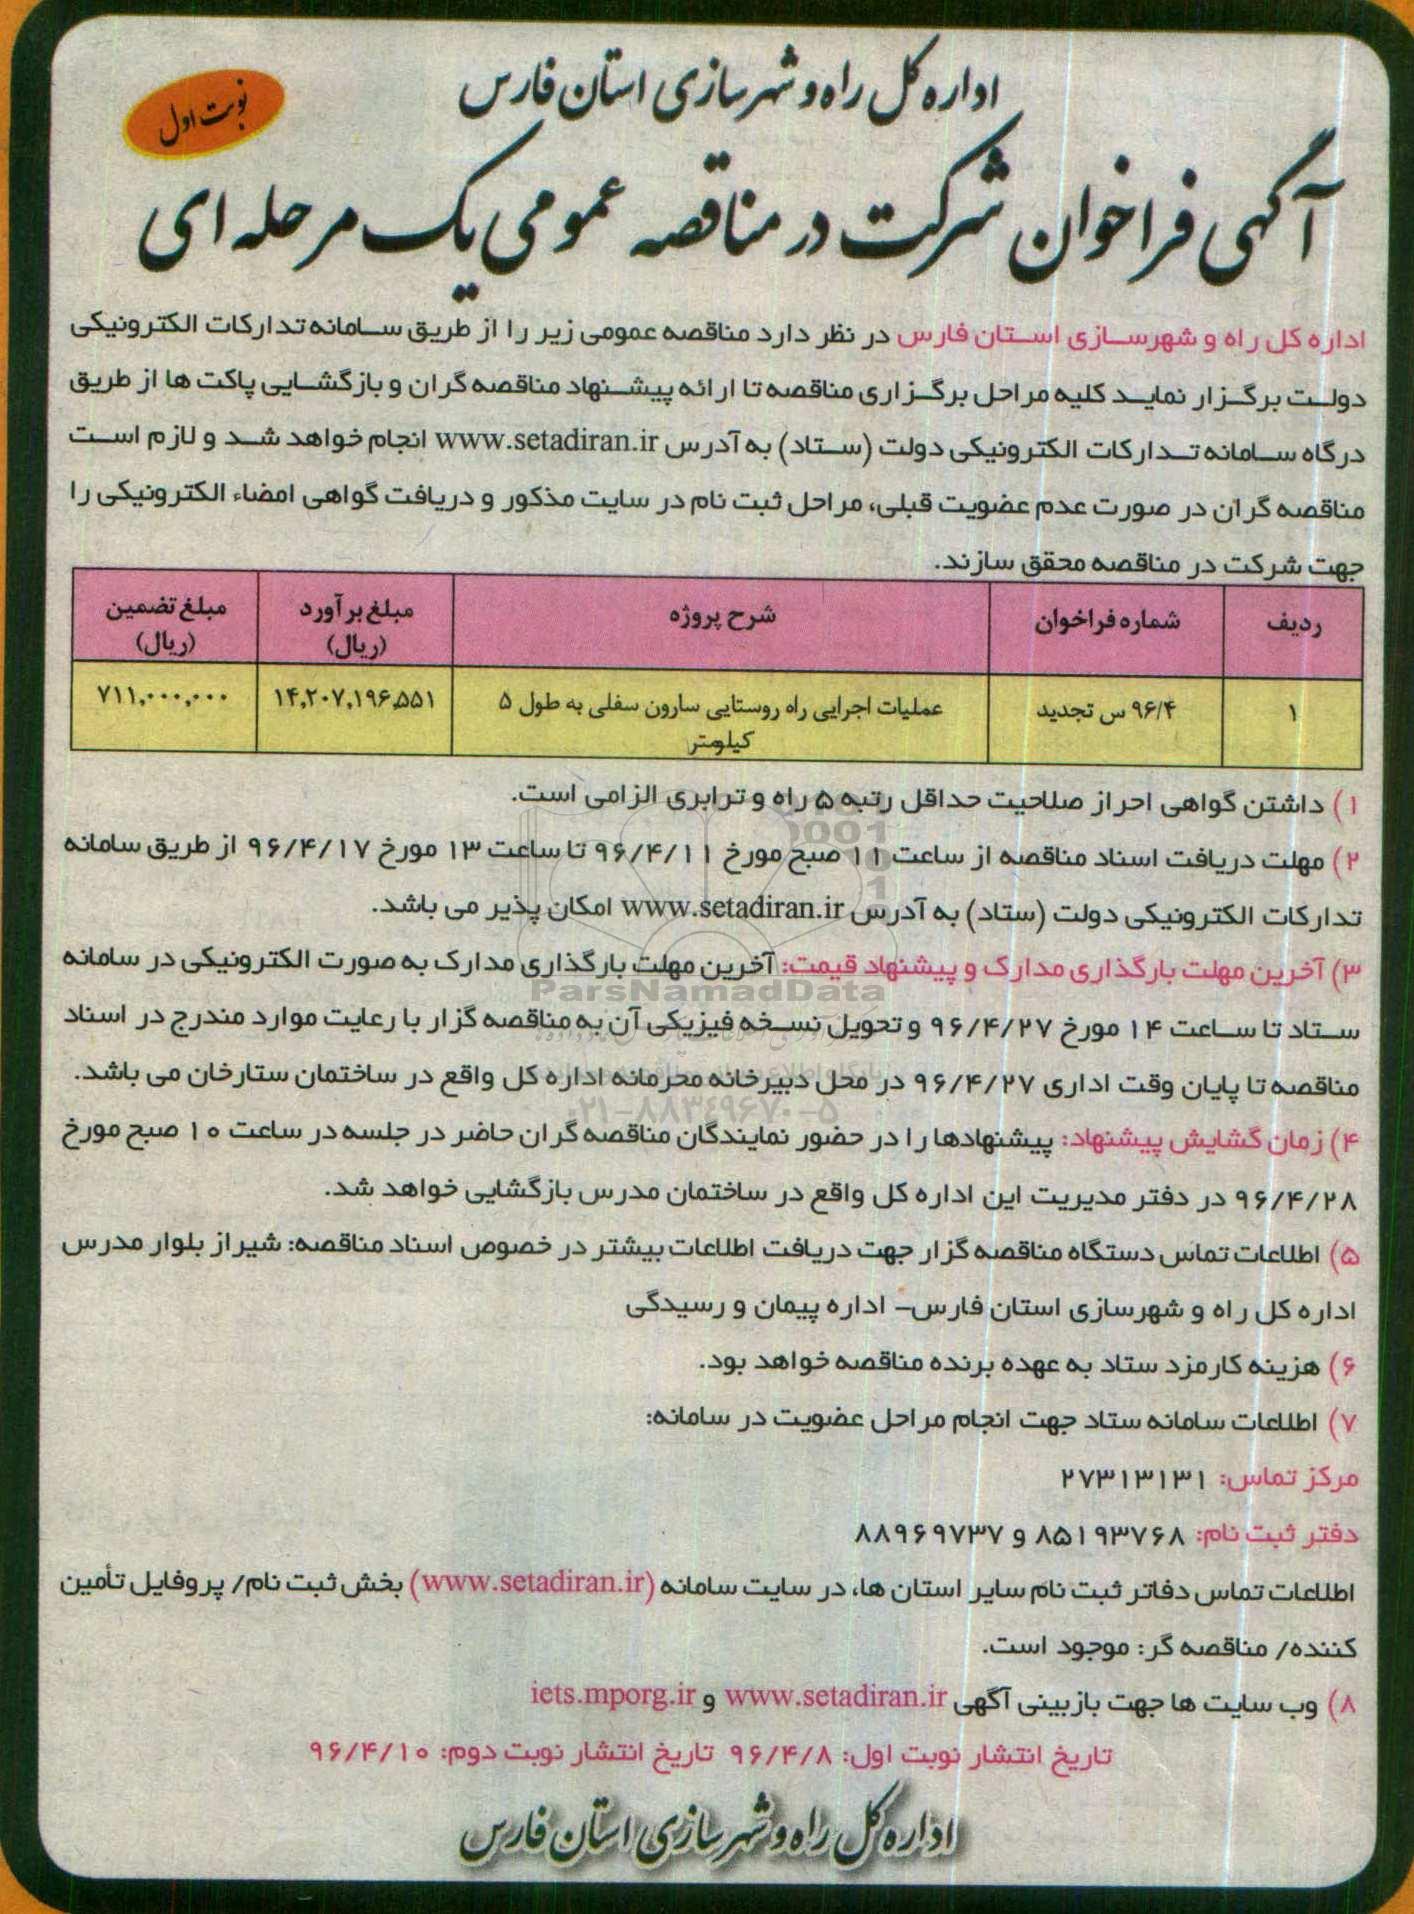 اداره کل راه و شهرسازی استان فارس
نوبت اول
آگهی فراخوان شرکت در مناقصه عمومی یک مرحله ای
اداره کل راه و شهرسازی استان فارس در نظر دارد مناقصه عمومی زیر را از طریق سامانه تدارکات الکترونیکی
دولت برگزار نماید کلیه مراحل برگزاری مناقصه تا ارائه پیشنهاد مناقصه گران و بازگشایی پاکت ها از طریق
درگاه سامانه تدارکات الکترونیکی دولت (ستاد) به آدرس www.setadiran.ir انجام خواهد شد و لازم است
مناقصه گران در صورت عدم عضویت قبلی، مراحل ثبت نام در سایت مذکور و دریافت گواهی امضاء الکترونیکی را
جهت شرکت در مناقصه محقق سازند.
ردیف شماره فراخوان شرح پروژه مبلغ برآورد (ریال) مبلغ تضمین (ریال)
۱ ۹۶/۴ س تجدید عملیات اجرایی راه روستایی سارون سفلی به طول ۵ ۱۴,۲۰۷,۱۹۶,۵۵۱ ۷۱۱,۰۰۰,۰۰۰
کیلومتر
۱) داشتن گواهی احراز صلاحیت حداقل رتبه ۵ راه و ترابری الزامی است.
۲) مهلت دریافت اسناد مناقصه از ساعت ۱۱ صبح مورخ ۹۶/۴/۱۱ تا ساعت ۱۳ مورخ ۹۶/۴/۱۷ از طریق سامانه
تدارکات الکترونیکی دولت (ستاد) به آدرس www.setadiran.ir امکان پذیر می باشد.
۳) آخرین مهلت بارگذاری مدارک و پیشنهاد قیمت: آخرین مهلت بارگذاری مدارک به صورت الکترونیکی در سامانه
ParsNamadData
ستاد تا ساعت ۱۴ مورخ ۹۶/۴/۲۷ و تحویل نسخه فیزیکی آن به مناقصه گزار با رعایت موارد مندرج در اسناد
مناقصه تا پایان وقت اداری ۹۶/۴/۲۷ در محل دبیرخانه محرمانه اداره کل واقع در ساختمان ستارخان می باشد.
۰۲۱-۸۸۳۴۹۶۷۰-۵
۴) زمان گشایش پیشنهاد: پیشنهادها را در حضور نمایندگان مناقصه گران حاضر در جلسه در ساعت ۱۰ صبح مورخ
۹۶/۴/۲۸ در دفتر مدیریت این اداره کل واقع در ساختمان مدرس بازگشایی خواهد شد.
۵) اطلاعات تماس دستگاه مناقصه گزار جهت دریافت اطلاعات بیشتر در خصوص اسناد مناقصه: شیراز بلوار مدرس
اداره کل راه و شهرسازی استان فارس- اداره پیمان و رسیدگی
۶) هزینه کارمزد ستاد به عهده برنده مناقصه خواهد بود.
۷) اطلاعات سامانه ستاد جهت انجام مراحل عضویت در سامانه:
مرکز تماس: ۲۷۳۱۳۱۳۱
دفتر ثبت نام: ۸۵۱۹۳۷۶۸ و ۸۸۹۶۹۷۳۷
اطلاعات تماس دفاتر ثبت نام سایر استان ها، در سایت سامانه (www.setadiran.ir) بخش ثبت نام/ پروفایل تأمین
کننده/ مناقصه گر: موجود است.
۸) وب سایت ها جهت بازبینی آگهی www.setadiran.ir و iets.mporg.ir
تاریخ انتشار نوبت اول: ۹۶/۴/۸ تاریخ انتشار نوبت دوم: ۹۶/۴/۱۰
اداره کل راه و شهرسازی استان فارس